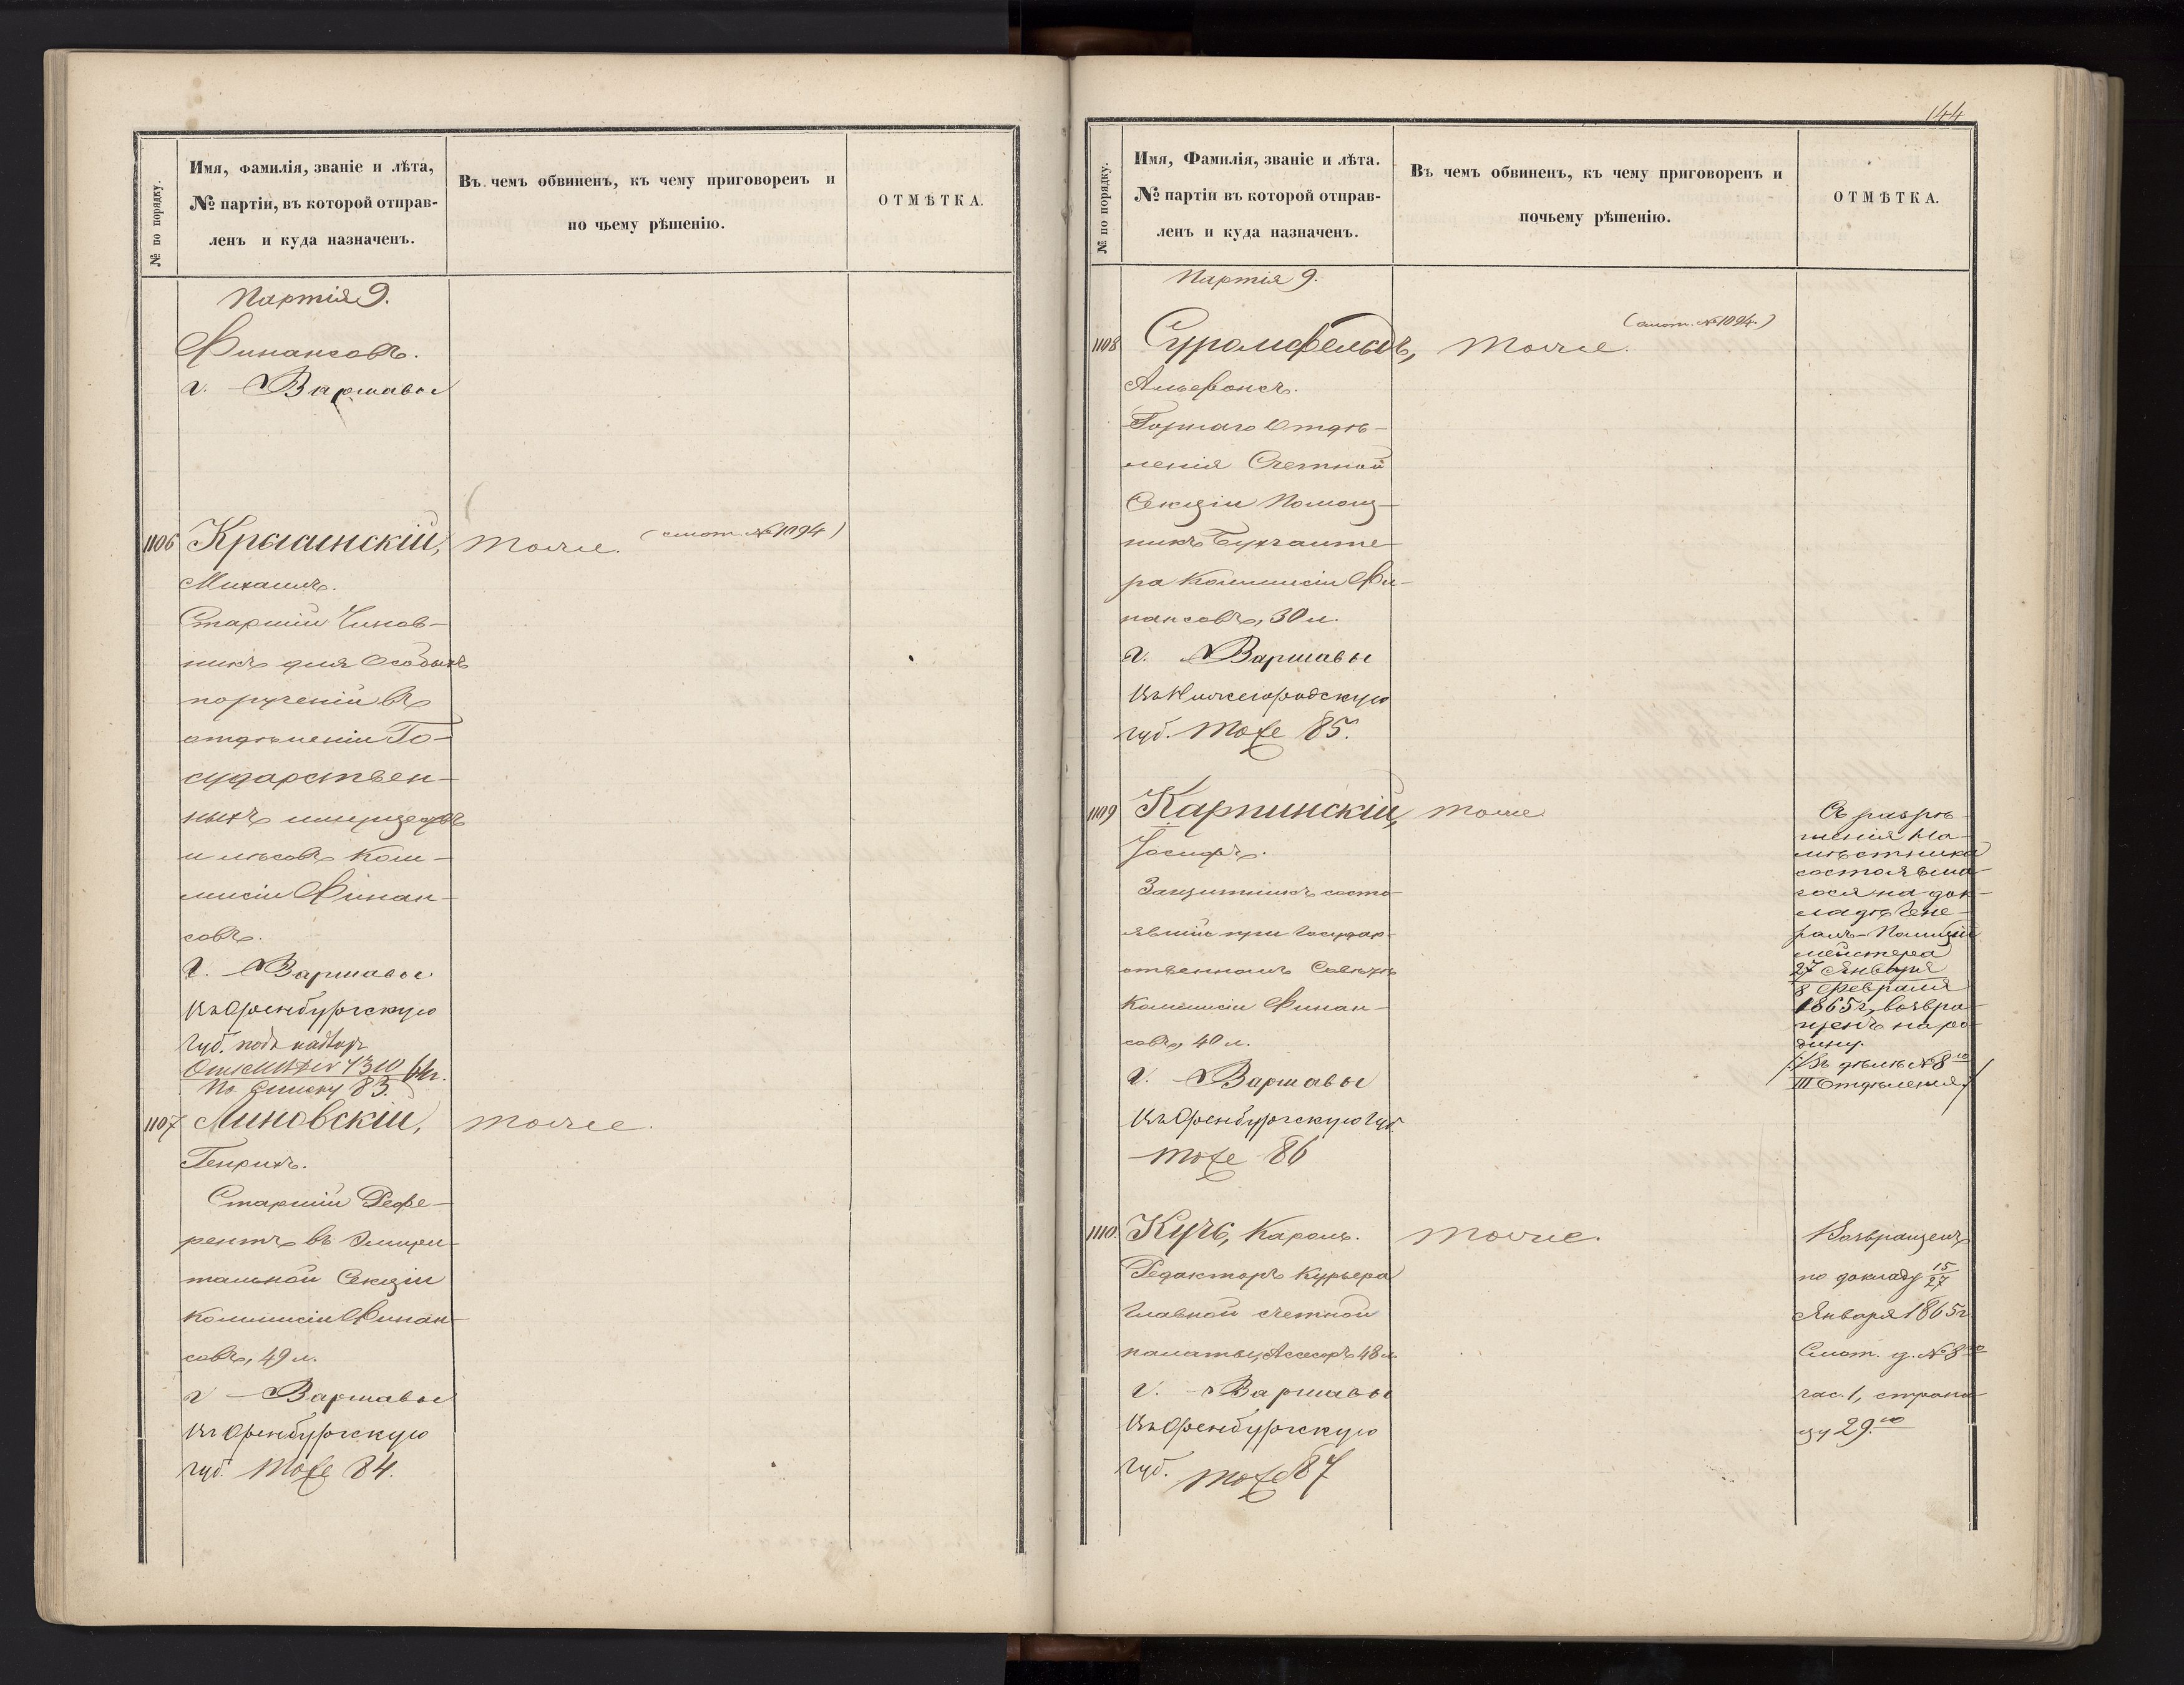 № по порядку.
Имя, Фамилія, званіе и лѣта,
№ партіи, въ которой отправ-
ленъ и куда назначенъ.
Въ чемъ обвиненъ, къ чему приговоренъ и
по чьему рѣшенію.
ОТМѢТКА.
Партія 9.
Финансовъ.
г. Варшавы
1106
Михаилъ.
Старшій Чинов-
никъ для Особыхъ
порученій въ
отдѣленіи Го-
сударствен-
ныхъ имуществъ
и лѣсовъ Ком-
мисіи Финан-
совъ.
г. Варшавы
въ Оренбургскую
губ. подъ надзоръ
По списку 83.
тоже. (смот. № 1094)
1107 Линовскій,
Генрихъ.
Старшій Рефе-
рентъ въ Эмери-
тальной Секціи
Коммисіи Финан-
совъ, 49 л.
г. Варшавы
въ Оренбургскую
губ. тоже 84.
тоже.
144
№ по порядку.
Имя, Фамилія, званіе и лѣта.
№ партіи въ которой отправ-
ленъ и куда назначенъ.
Въ чемъ обвиненъ, къ чему приговоренъ и
почьему рѣшенію.
ОТМѢТКА.
Партія 9.
1108
Альфонсъ.
Горнаго Отдѣ-
ленія Счетной
Секціи Помощ-
никъ Бухгалте-
ра Коммисіи Фи-
нансовъ, 30 л.
г. Варшавы
въ Нижегородскую
губ. тоже 85.
(смот. № 1094.)
тоже.
1109 Карпинскій,
Іосифъ.
Защитникъ состо-
явшій при Государ-
ственномъ Совѣтѣ
Коммисіи Финан-
совъ, 40 л.
г. Варшавы
въ Оренбургскую губ.
тоже 86
тоже
Съ разрѣ-
шенія На-
мѣстника
состоявша-
гося на док-
ладѣ Гене-
ралъ-Полиціи
мейстера
27 Января
8 Февраля
1865 г. возвра-
щенъ на ро-
дину.
(Въ дѣлѣ № 8
III Отдѣленія)
1110. Кучъ, Кароль.
Редакторъ Курьера
Главной счетной
палаты, Ассесоръ 48 л.
г. Варшавы
въ Оренбургскую
губ. тоже 87
тоже.
Возвращенъ
по докладу 15/27
Января 1865 г.
Смот. д. № 8
час. 1, страни-
цу 29.